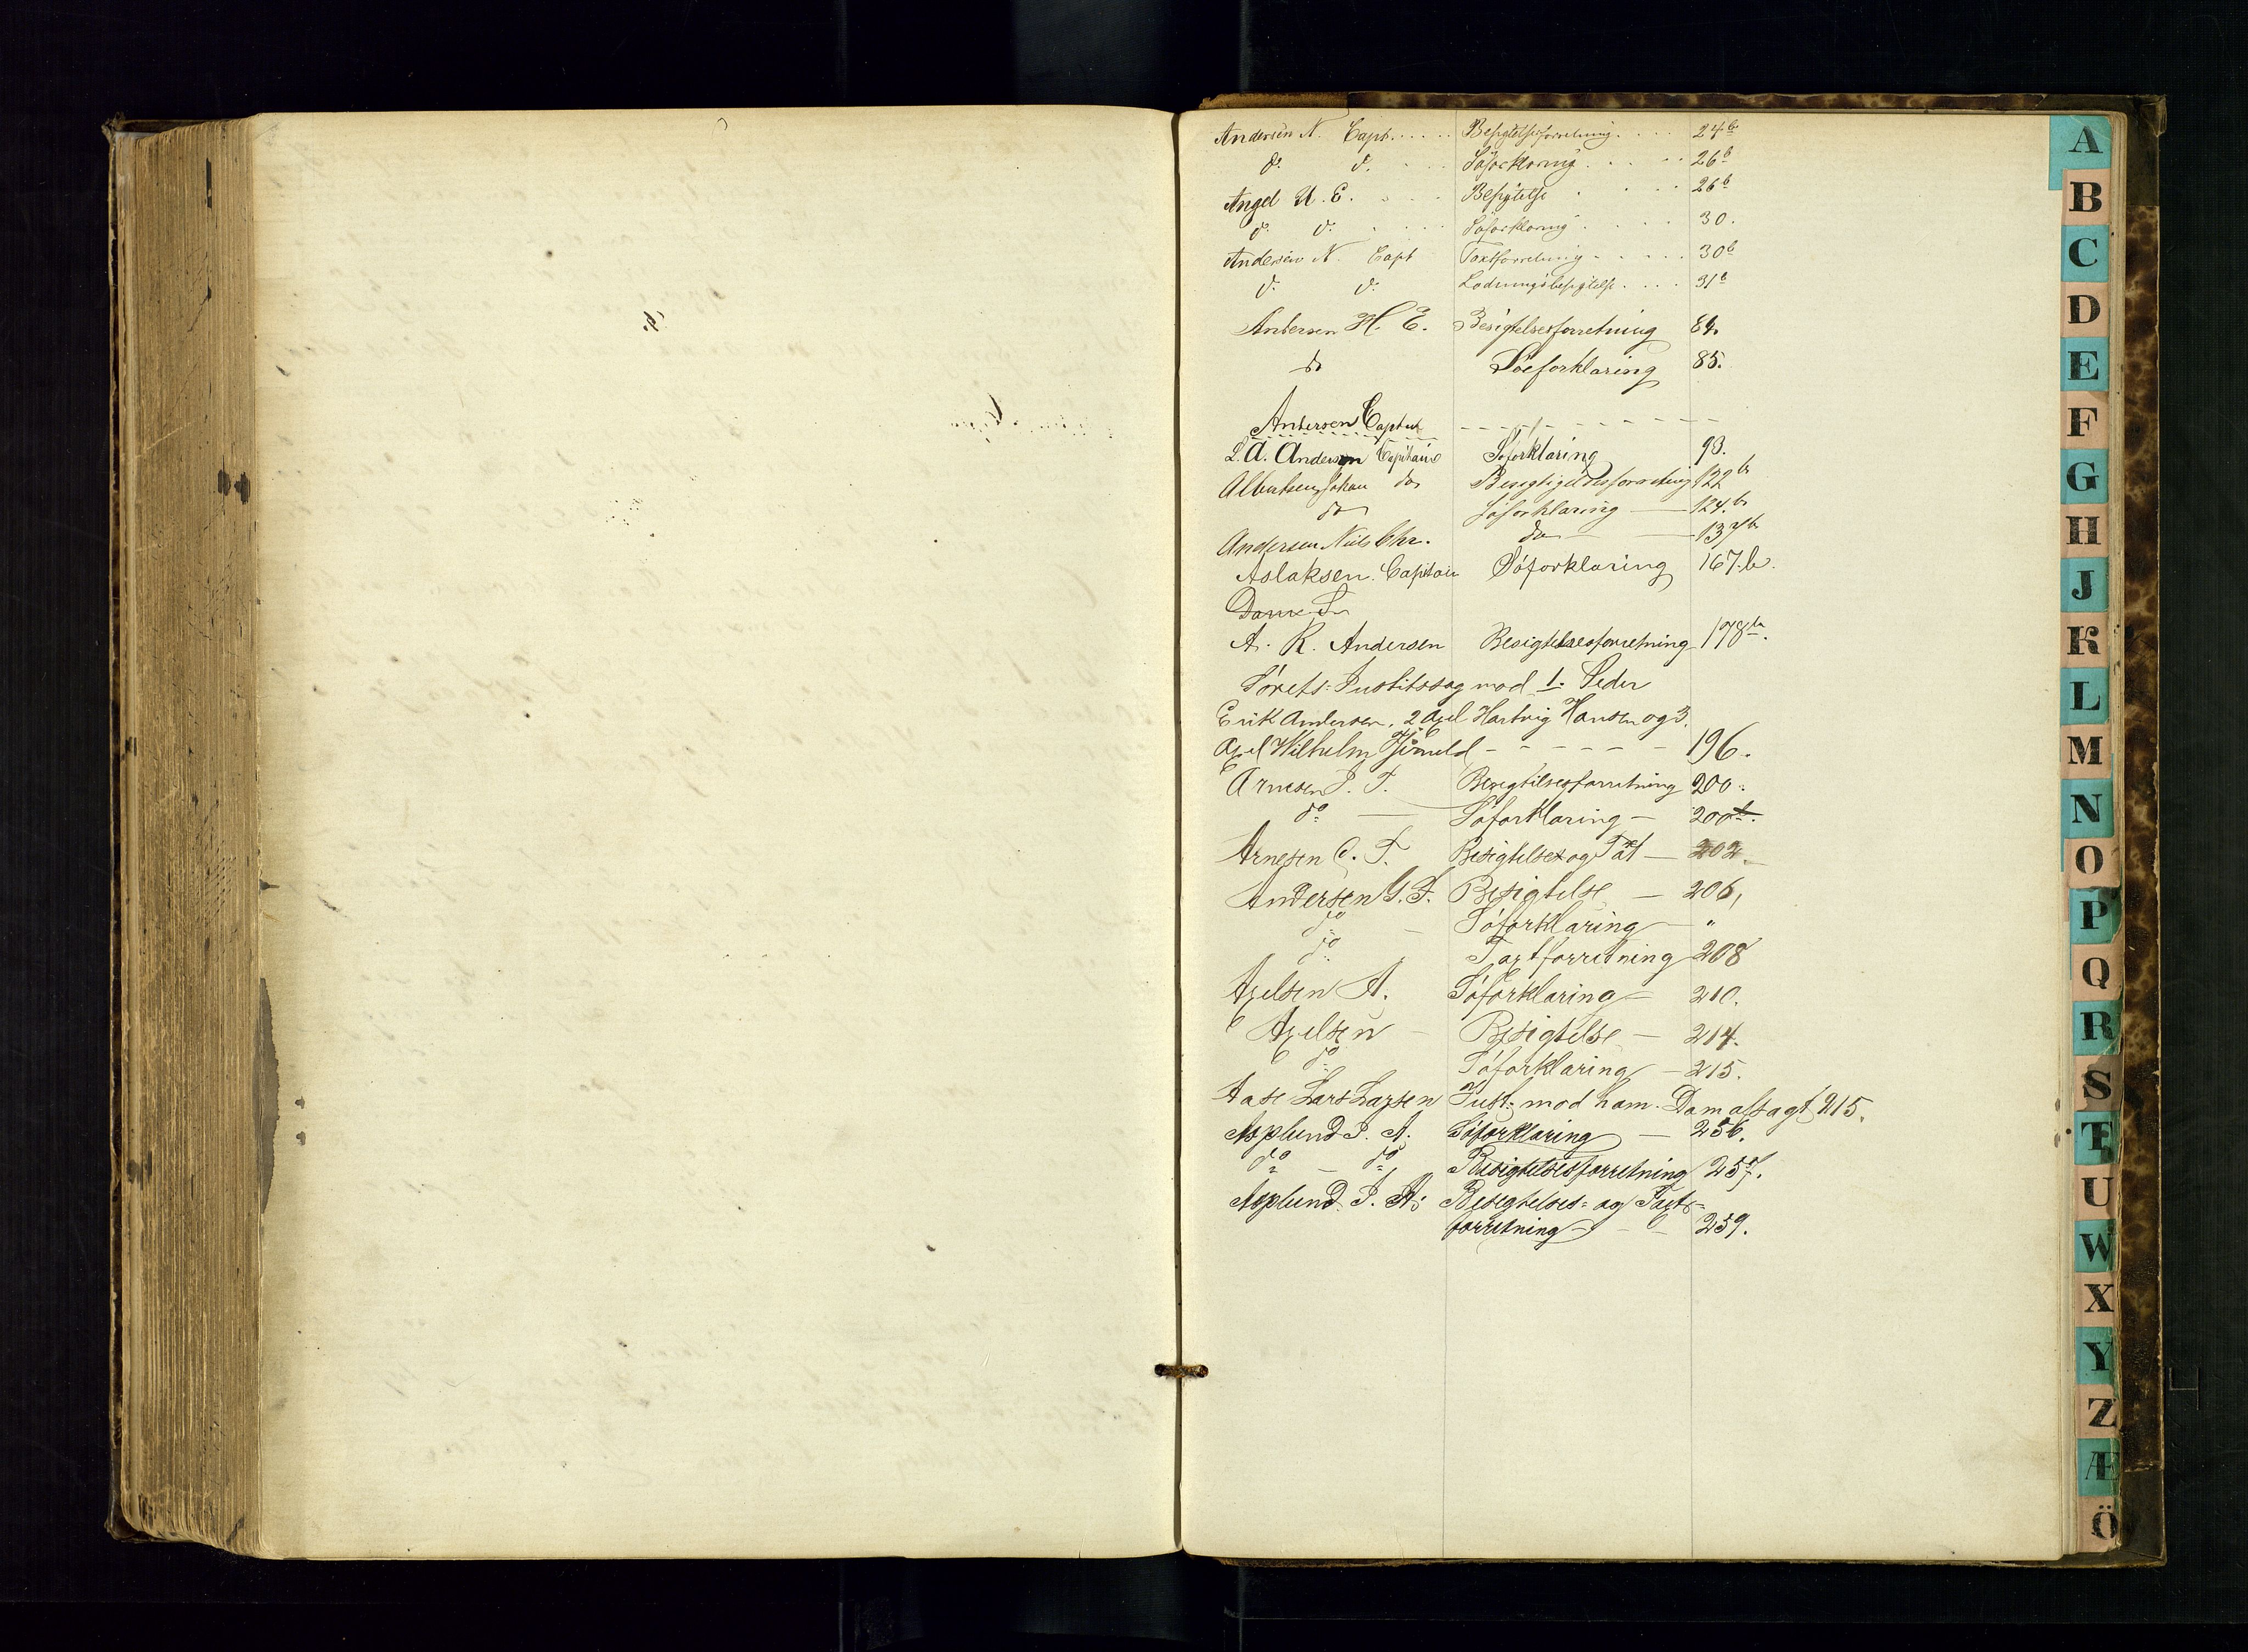 Andersen N. Capt. . . . . . Besigtelsesforretning. . . . . 24b
do. do. . . . Søforklaring. . . . . . 26b
Angel U. E. . . . Besigtelse . . . . 26b
do. do. . . . . Søforklaring . . . . 30.
Andersen N. Capt Taxtforretning - . . . . 30b
do. do. Ladningsbesigtelse. . . . 31b
Andersen H. E. Besigtelsesforretning 84.
do Söeforklaring 85.
Andersen Capt
L. A. Andersen Capitaine Søforklaring 93.
Albertsen Johan do Besigtigelsesforretning 122b
do Søforklaring — 124.b
Andersen Niels Chr. do — 137b
Aslaksen. Capitain Söforklaring 167.b.
A. R. Andersen Besigtelsesforretning 178b.
Sørets-Justitssag mod 1. Peder
Erik Andersen, 2 Axel Hartvig Hansen og 3.
Axel Wilhelm - - - - - - 196.
Arnesen J. T. Besigtilsesforretning 200.
do — Søforklaring — 200b.
Arnesen C. T. Besigtelses og Taxt — 202.
Andersen G. F. Besigtelse — 206,
do — Søforklaring — "
do Taxtforretning 208
Axelsen A. Søforklaring — 210.
Axelsen — Besigtelse — 214.
do Søforklaring — 215.
Aase Lars Larsen Just: mod ham. Dom afsagt 215.
Asplund J. A. Søforklaring — 256.
do — do Besigtelsesforretning 257.
Asplund J. A. Besigtelses- og Taxt-
forretning — 259.
A
B
C
D
E
F
G
H
J
K
L
M
N
O
P
Q
R
S
T
U
W
X
Y
Z
Æ
Ö